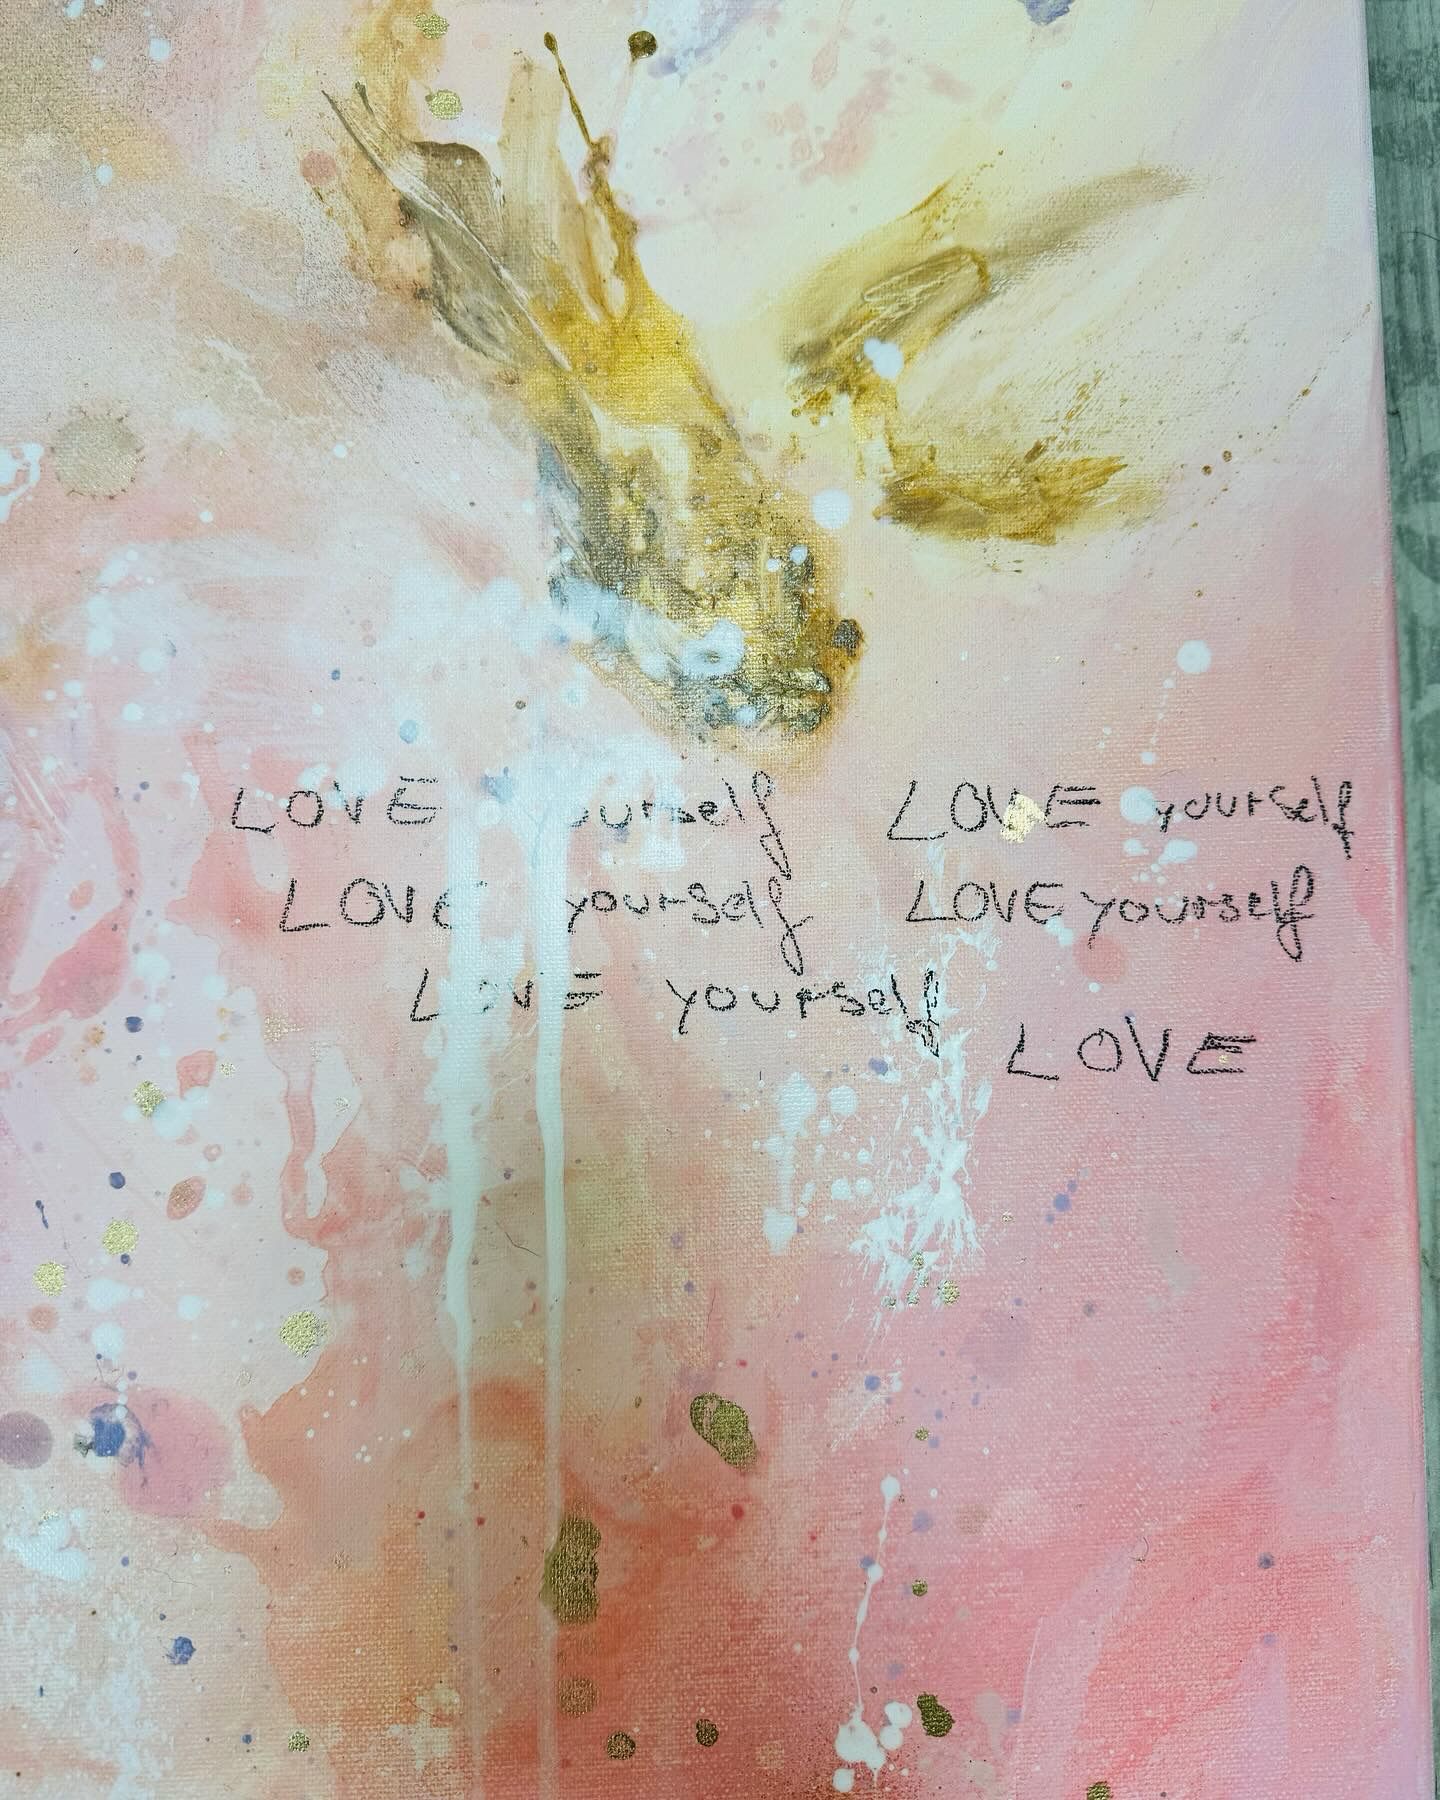 LOVE yourself LOVE yourself
LOVE yourself LOVE yourself
LOVE yourself
LOVE